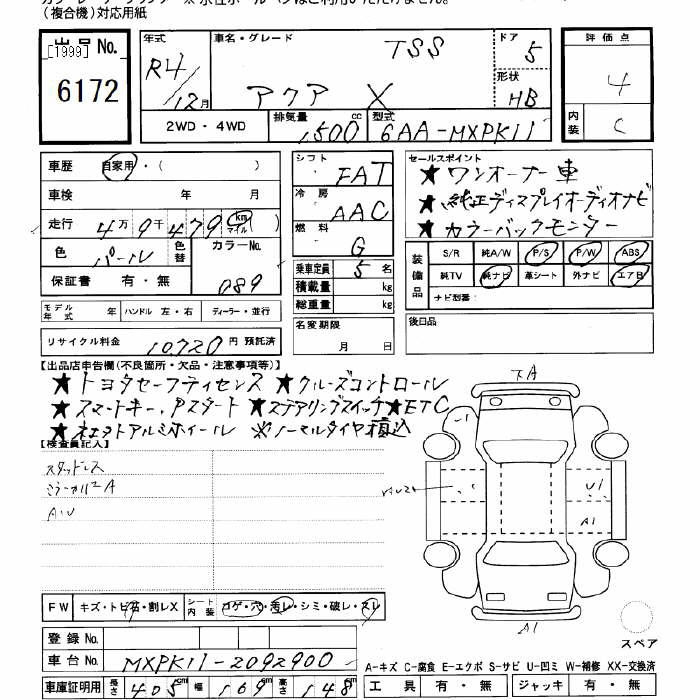 (複合機)対応用紙
出品No.
[1999]
6172
年式
R4/12月
車名・グレード
TSS
アクア X
ドア
5
形状
HB
評価点
4
内装
C
2WD・4WD
排気量 1500 cc
型式 6AA-MXPK11
車歴 自家用・( )
車検 年 月
走行 4万9千479 km マイル ( )
色 パール 色替 カラーNo. 089
保証書 有・無
シフト FAT
冷房 AAC
燃料 G
乗車定員 5 名
積載量 kg
総重量 kg
セールスポイント
★ワンオーナー車
★純正ディスプレイオーディオナビ
★カラーバックモニター
装備品
S/R 純A/W P/S P/W ABS
純TV 純ナビ 革シート 外ナビ エアB
ナビ型番:
モデル年式 年 ハンドル 左・右 ディーラー・並行
名変期限
月 日
後日品
リサイクル料金 10720 円 預託済
【出品店申告欄(不良箇所・欠品・注意事項等)】
★トヨタセーフティセンス ★クルーズコントロール
★スマートキー、Pスタート ★ステアリングスイッチ ★ETC
★社外アルミホイール ※ノーマルタイヤ積込
【検査員記入】
スタッドレス
A
AU
A
U1
A1
A1
FW キズ・トビ石・割レX シート内装 コゲ・穴・汚レ・シミ・破レ・スレ
登録No.
車台No. MXPK11-2092900
スペア
A-キズ C-腐食 E-エクボ S-サビ U-凹ミ W-補修 XX-交換済
車庫証明用 長さ 405 cm 幅 169 cm 高さ 148 cm
工具 有・無 ジャッキ 有・無